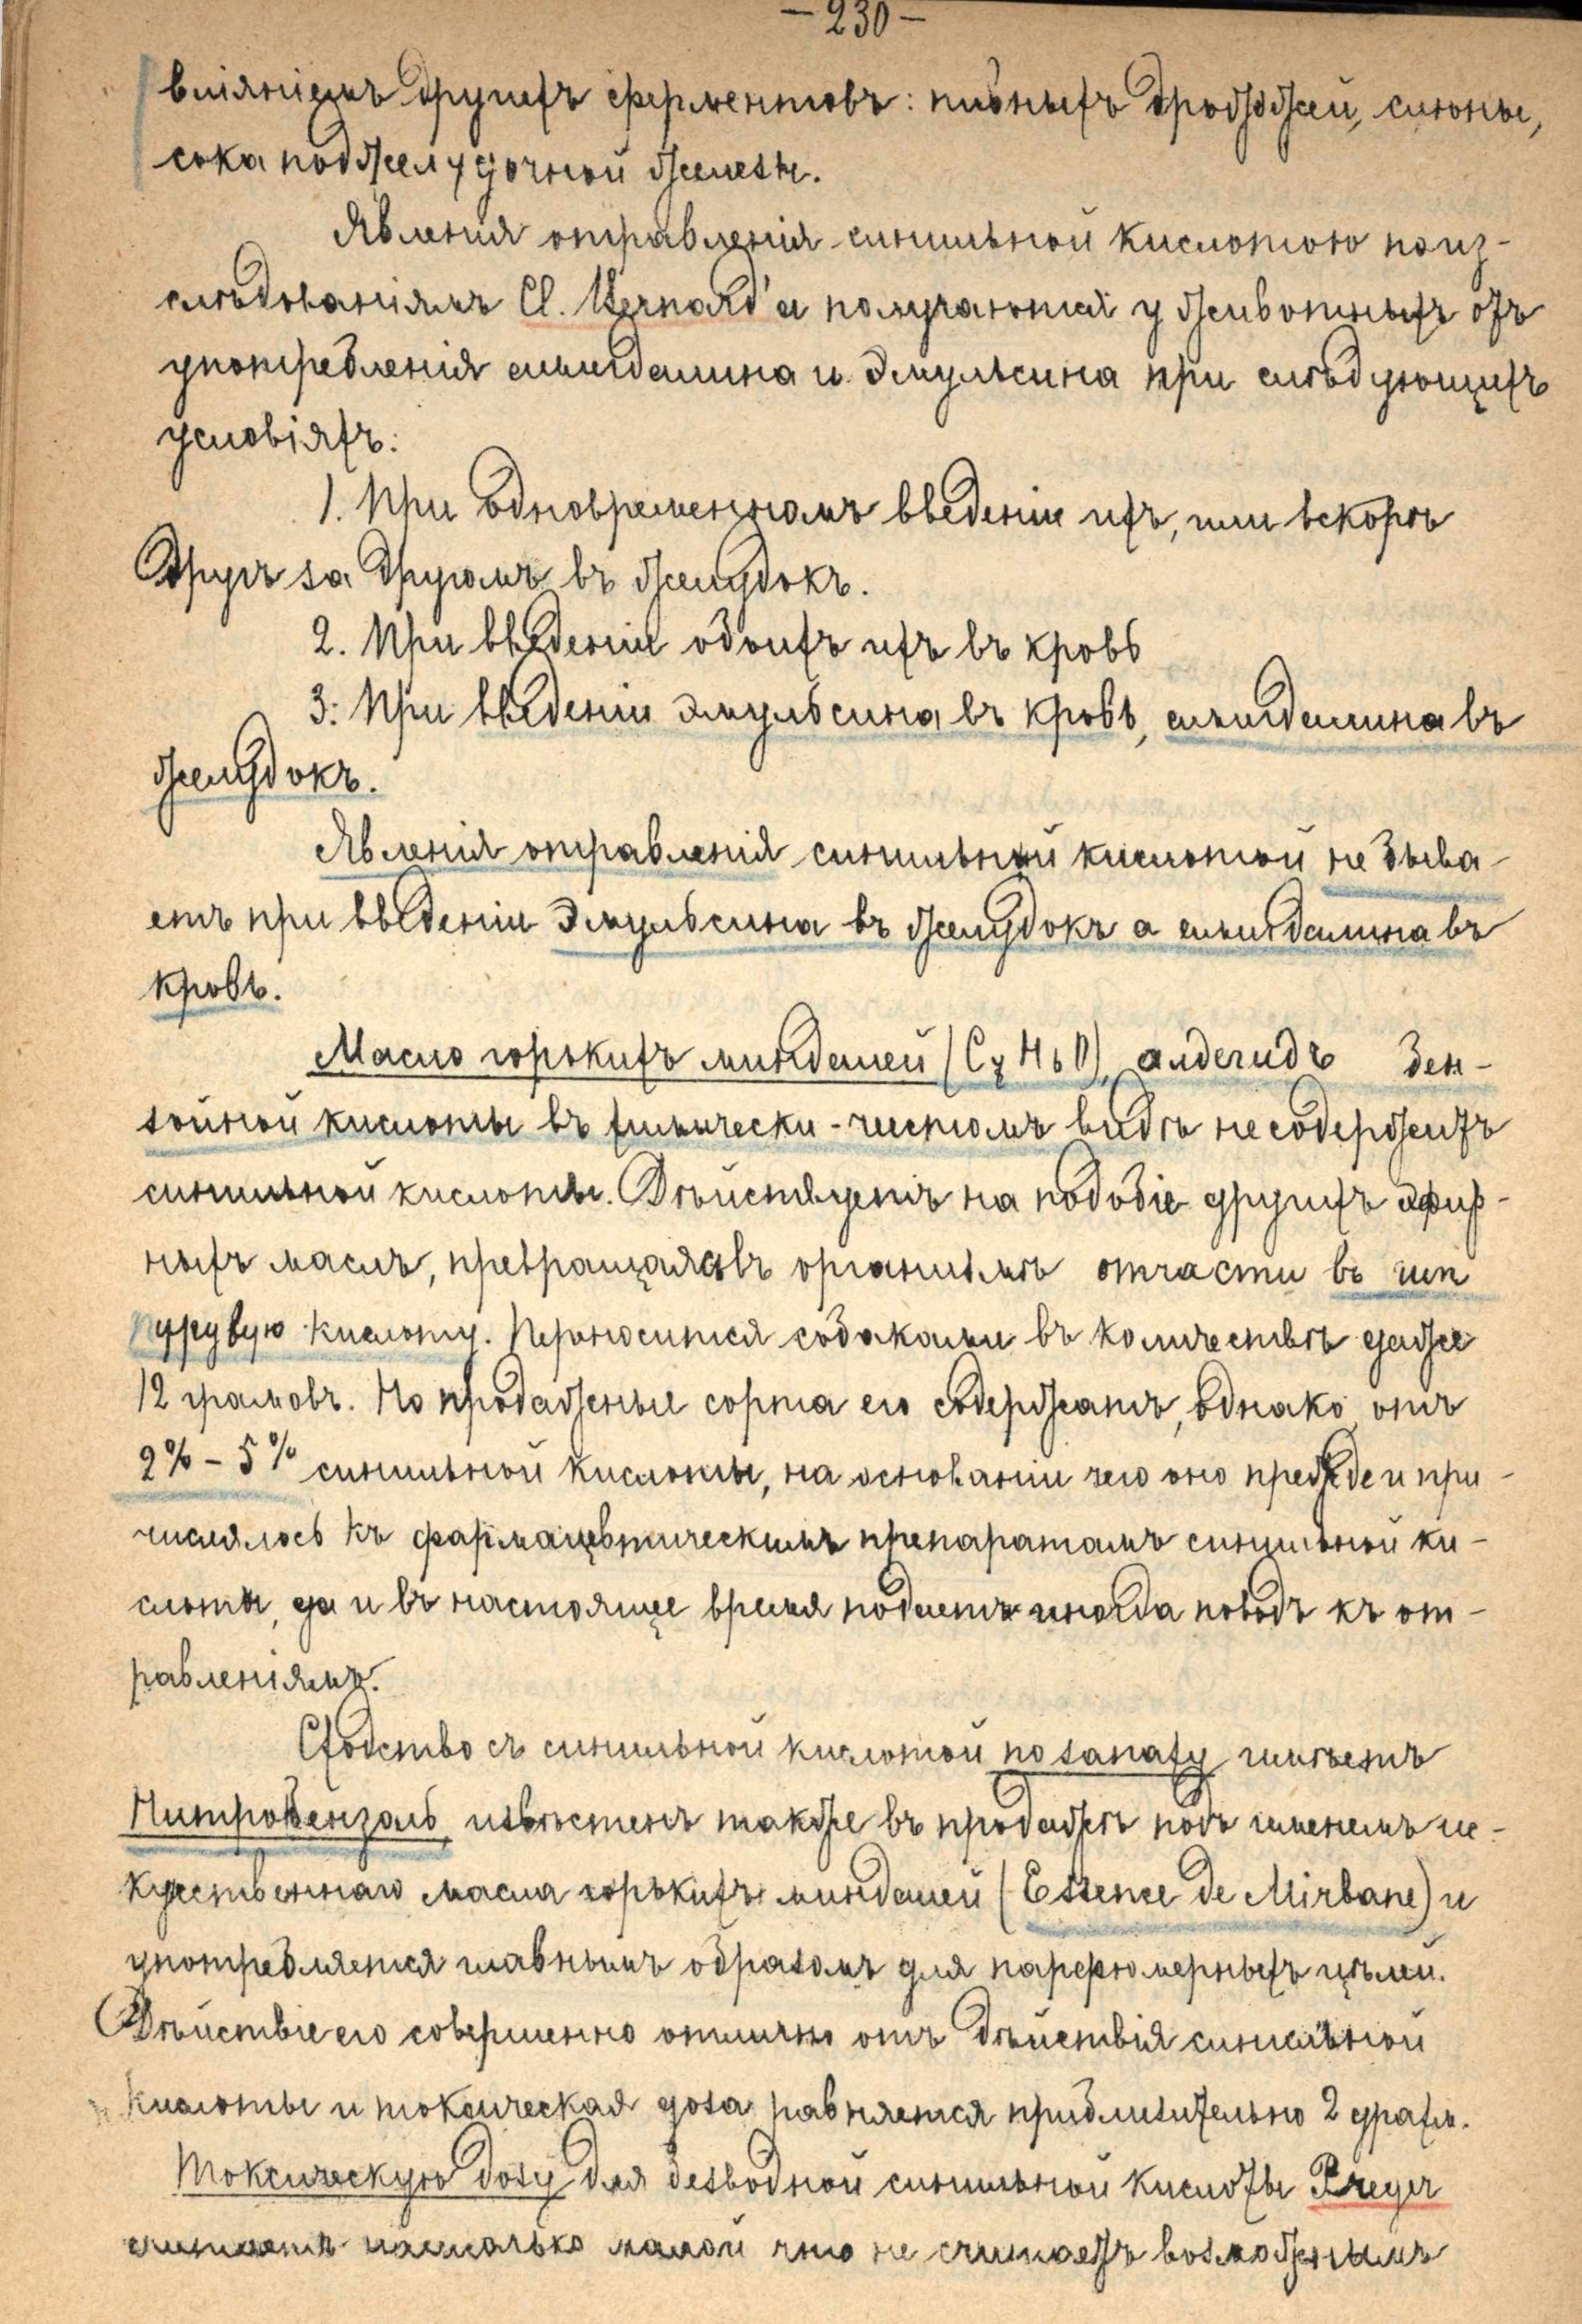 -230-
вліяніемъ другихъ ферментовъ: пивныхъ дрожджей, слюны,
сока поджелудочной железы.
Явленія отравленія синильной кислотою по из-
слѣдованіямъ Cl. Bernard'а получаются у животныхъ отъ
употребленія амигдалина и эмульсина при слѣдующихъ
условіяхъ:
1. При одновременномъ введеніи ихъ, или вскорѣ
другъ за другомъ въ желудокъ.
2. При введеніи обоихъ ихъ въ кровь
3. При введеніи эмульсина въ кровь, амигдалина въ
желудокъ.
Явленія отравленія синильной кислотой не быва-
етъ при введеніи эмульсина въ желудокъ а амигдалина въ
кровь.
Масло горькихъ миндалей (C7 H6 O), алдегидъ бен-
зойной кислоты въ химически-чистомъ видѣ не содержитъ
синильной кислоты. Дѣйствуетъ на подобіе другихъ эфир-
ныхъ маслъ, превращаясь въ организмѣ отчасти въ гип
пуровую кислоту. Переносится собаками въ количествѣ даже
12 грамовъ. Но продажные сорта его содержатъ, однако, отъ
2% - 5% синильной кислоты, на основаніи чего оно прежде и при-
числялось къ фармацевтическимъ препаратамъ синильной ки-
слоты, да и въ настоящее время подаетъ иногда поводъ къ от-
равленіямъ.
Сходство съ синильной кислотой по запаху имѣетъ
Нитробензолъ, извѣстенъ также въ продажѣ подъ именемъ ис-
куственнаго масла горькихъ миндалей (Essence de Mirbane) и
употребляется главнымъ образомъ для парфюмерныхъ цѣлей.
Дѣйствіе его совершенно отлично отъ дѣйствія синильной
кислоты и токсическая доза равняется приблизительно 2 драхм.
Токсическую дозу для безводной синильной кислоты Preyer
считаетъ настолько малой что не считаетъ возможнымъ